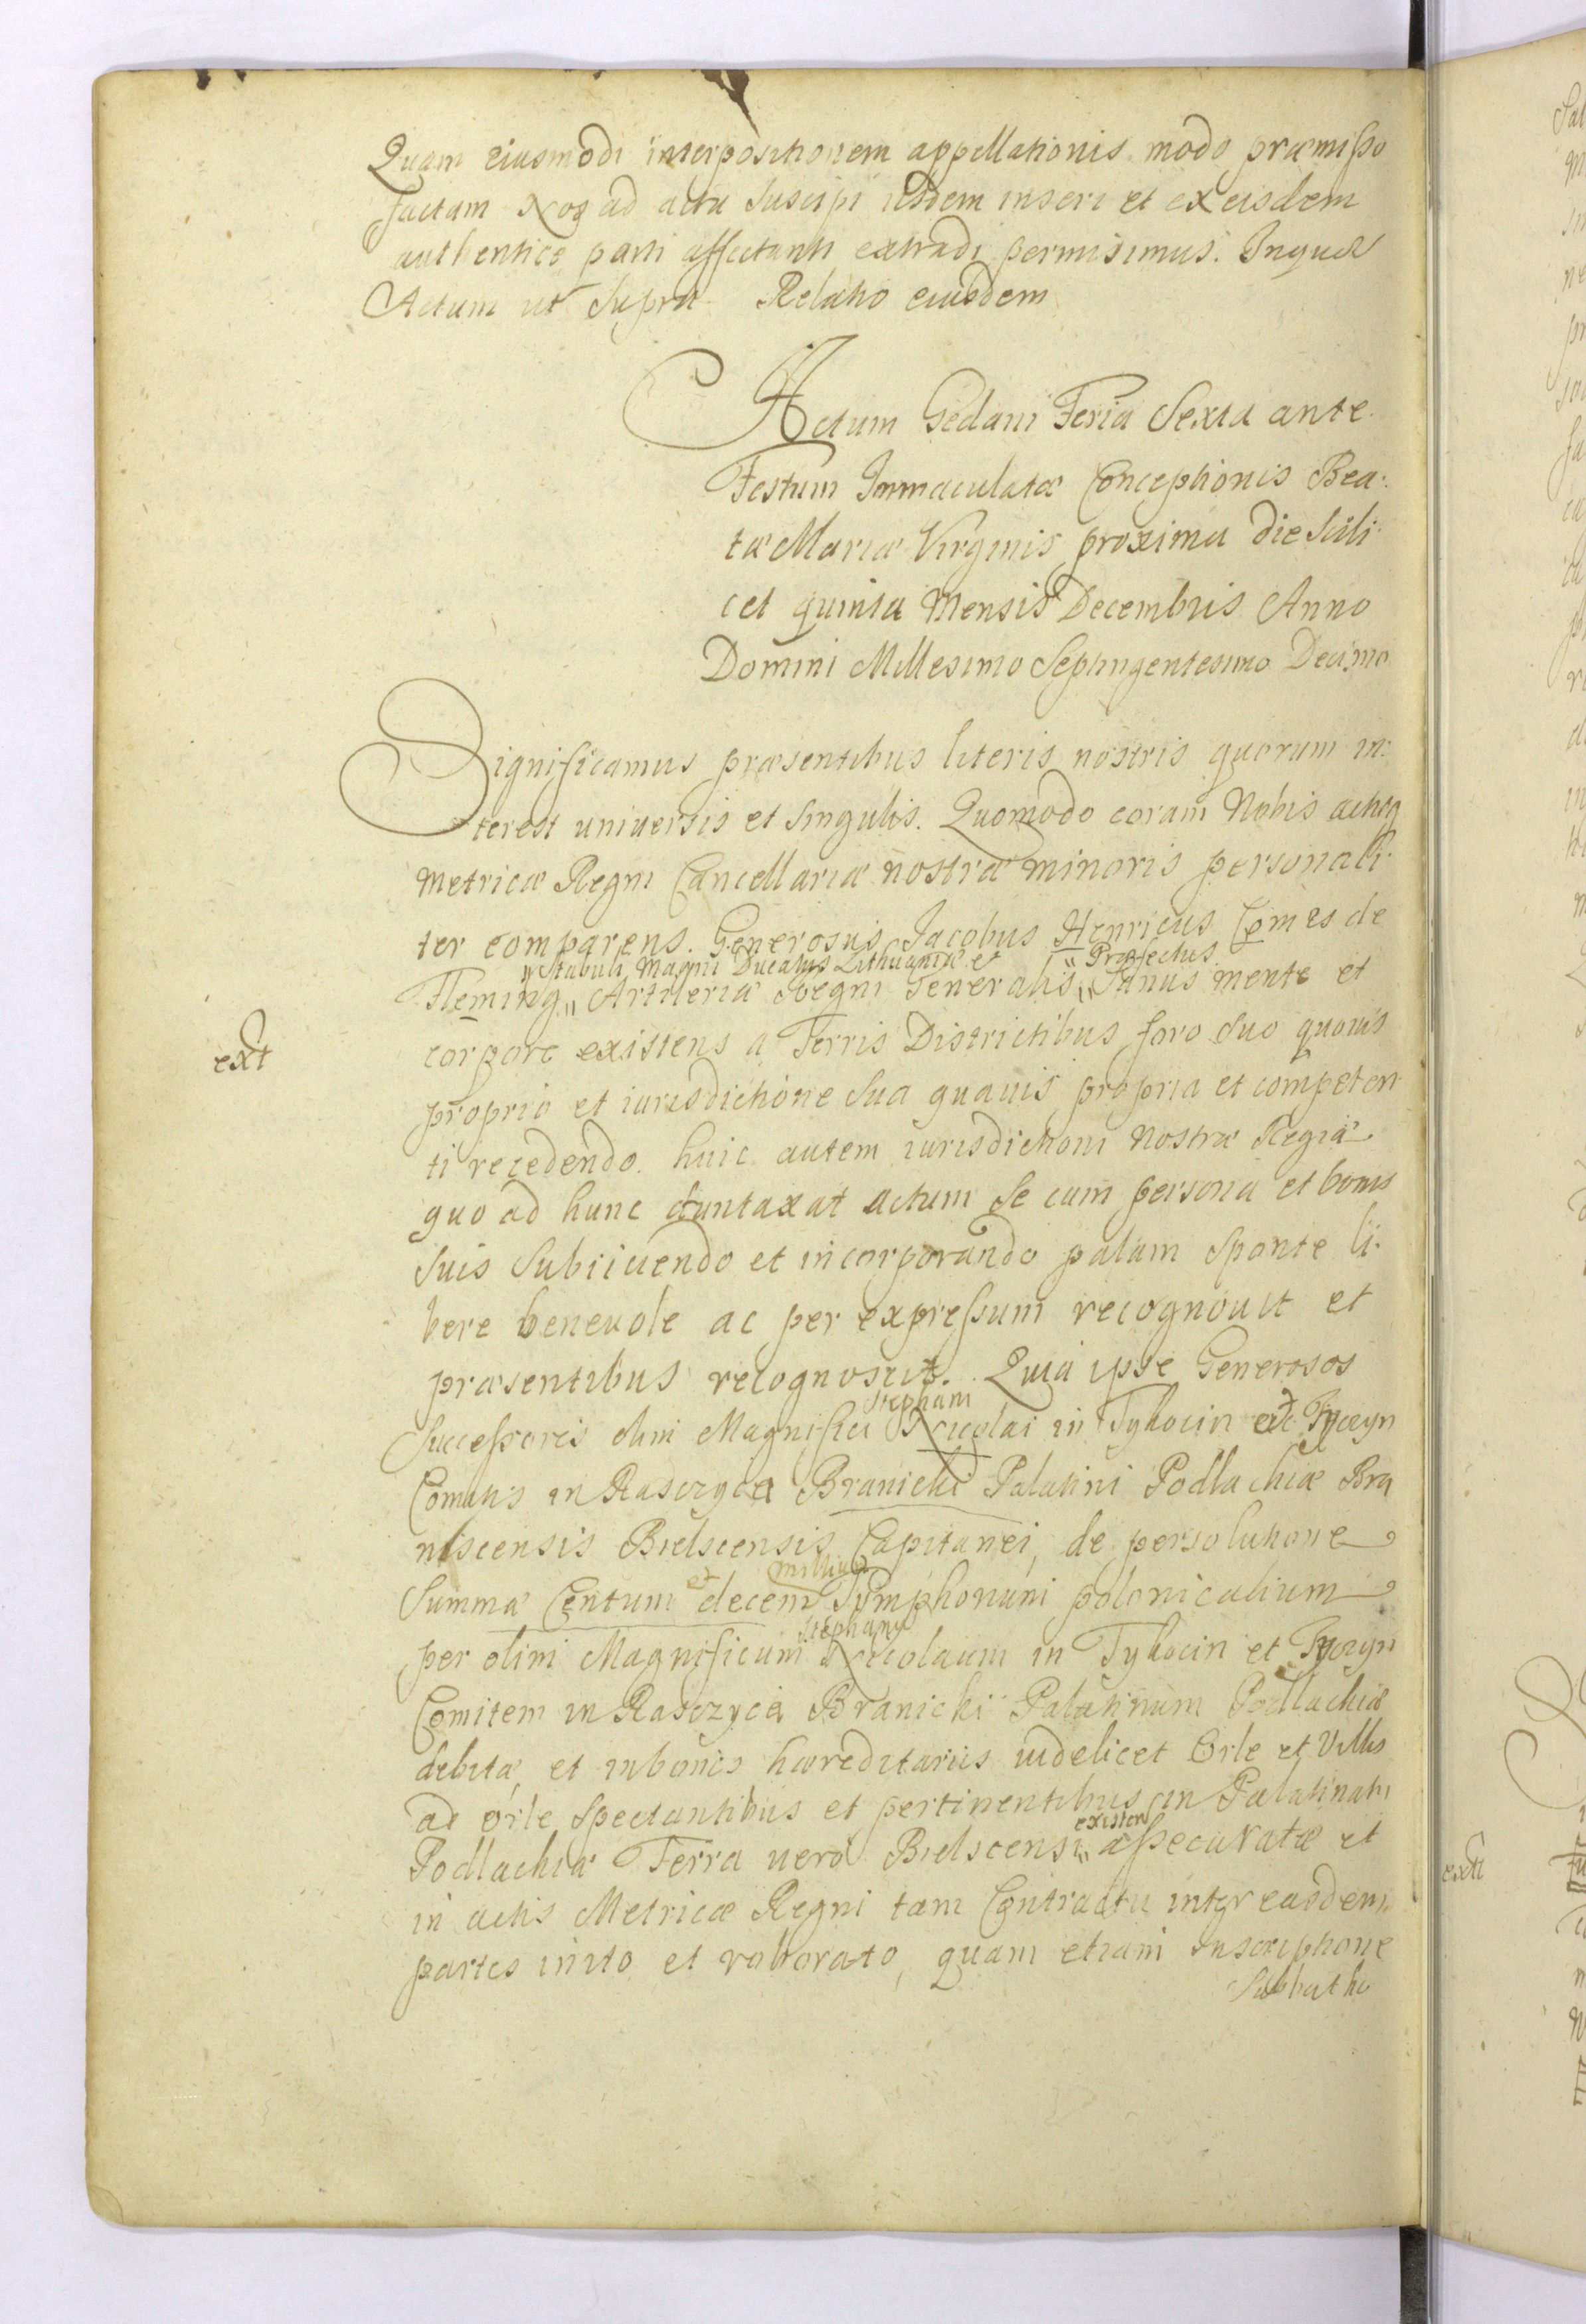 Quam eiusmodi interpositionem appellationis modo præmisso
factam Nos ad acta suscipi iisdem inseri et ex eisdem
authentice parti affectanti extradi permisimus. In quor
Actum ut supra Relatio eiusdem
Actum Gedani Feria Sexta ante
Festum Immaculatæ Conceptionis Bea-
tæ Mariæ Virginis proxima die scili-
cet quinta Mensis Decembris Anno
Domini Millesimo Septingentesimo Decimo
Significamus præsentibus literis nostris quorum in-
terest universis et singulis. Quomodo coram Nobis actisq
Metricæ Regni Cancellariæ nostræ minoris personali-
ter comparens. Generosus Jacobus Henricus Comes de
" Stabuli Magni Ducatus Lithuaniæ et " Præfectus
Fleming " Artileriæ Regni Generalis " Sanus mente et
ext
corpore existens a Terris Districtibus foro suo quovis
proprio et iurisdictione sua quavis propria et competen
ti recedendo. huic autem iurisdictioni Nostræ Regiæ
quo ad hunc duntaxat actum se cum persona et bonis
suis subiiciendo et incorporando palam sponte li-
bere benevole ac per expressum recognouit et
præsentibus recognoscit. Quia ipse Generosos
Stephani
Successores olim Magnifici Nicolai in Tykocin et Tyczyn
Comitis in Rasczyca Branicki Palatini Podlachiæ Bra
nscensis Bielscensis Capitanei, de persolutione
et millium
Summæ Centum decem Tymphonum polonicalium
Stephanu
per olim Magnificum Nicolaum in Tykocin et Tyczyn
Comitem in Rasczyca Branicki Palatinum Podlachiæ
debitæ, et in bonis hæreditariis videlicet Orle et Villis
ad Orle spectantibus et pertinentibus in Palatinatu
existen
Podlachiæ Terra vero Bielscensi " assecuratæ et
in actis Metricæ Regni tam Contractu inter easdem
partes inito et roborato, quam etiam inscriptione
Sabbatho